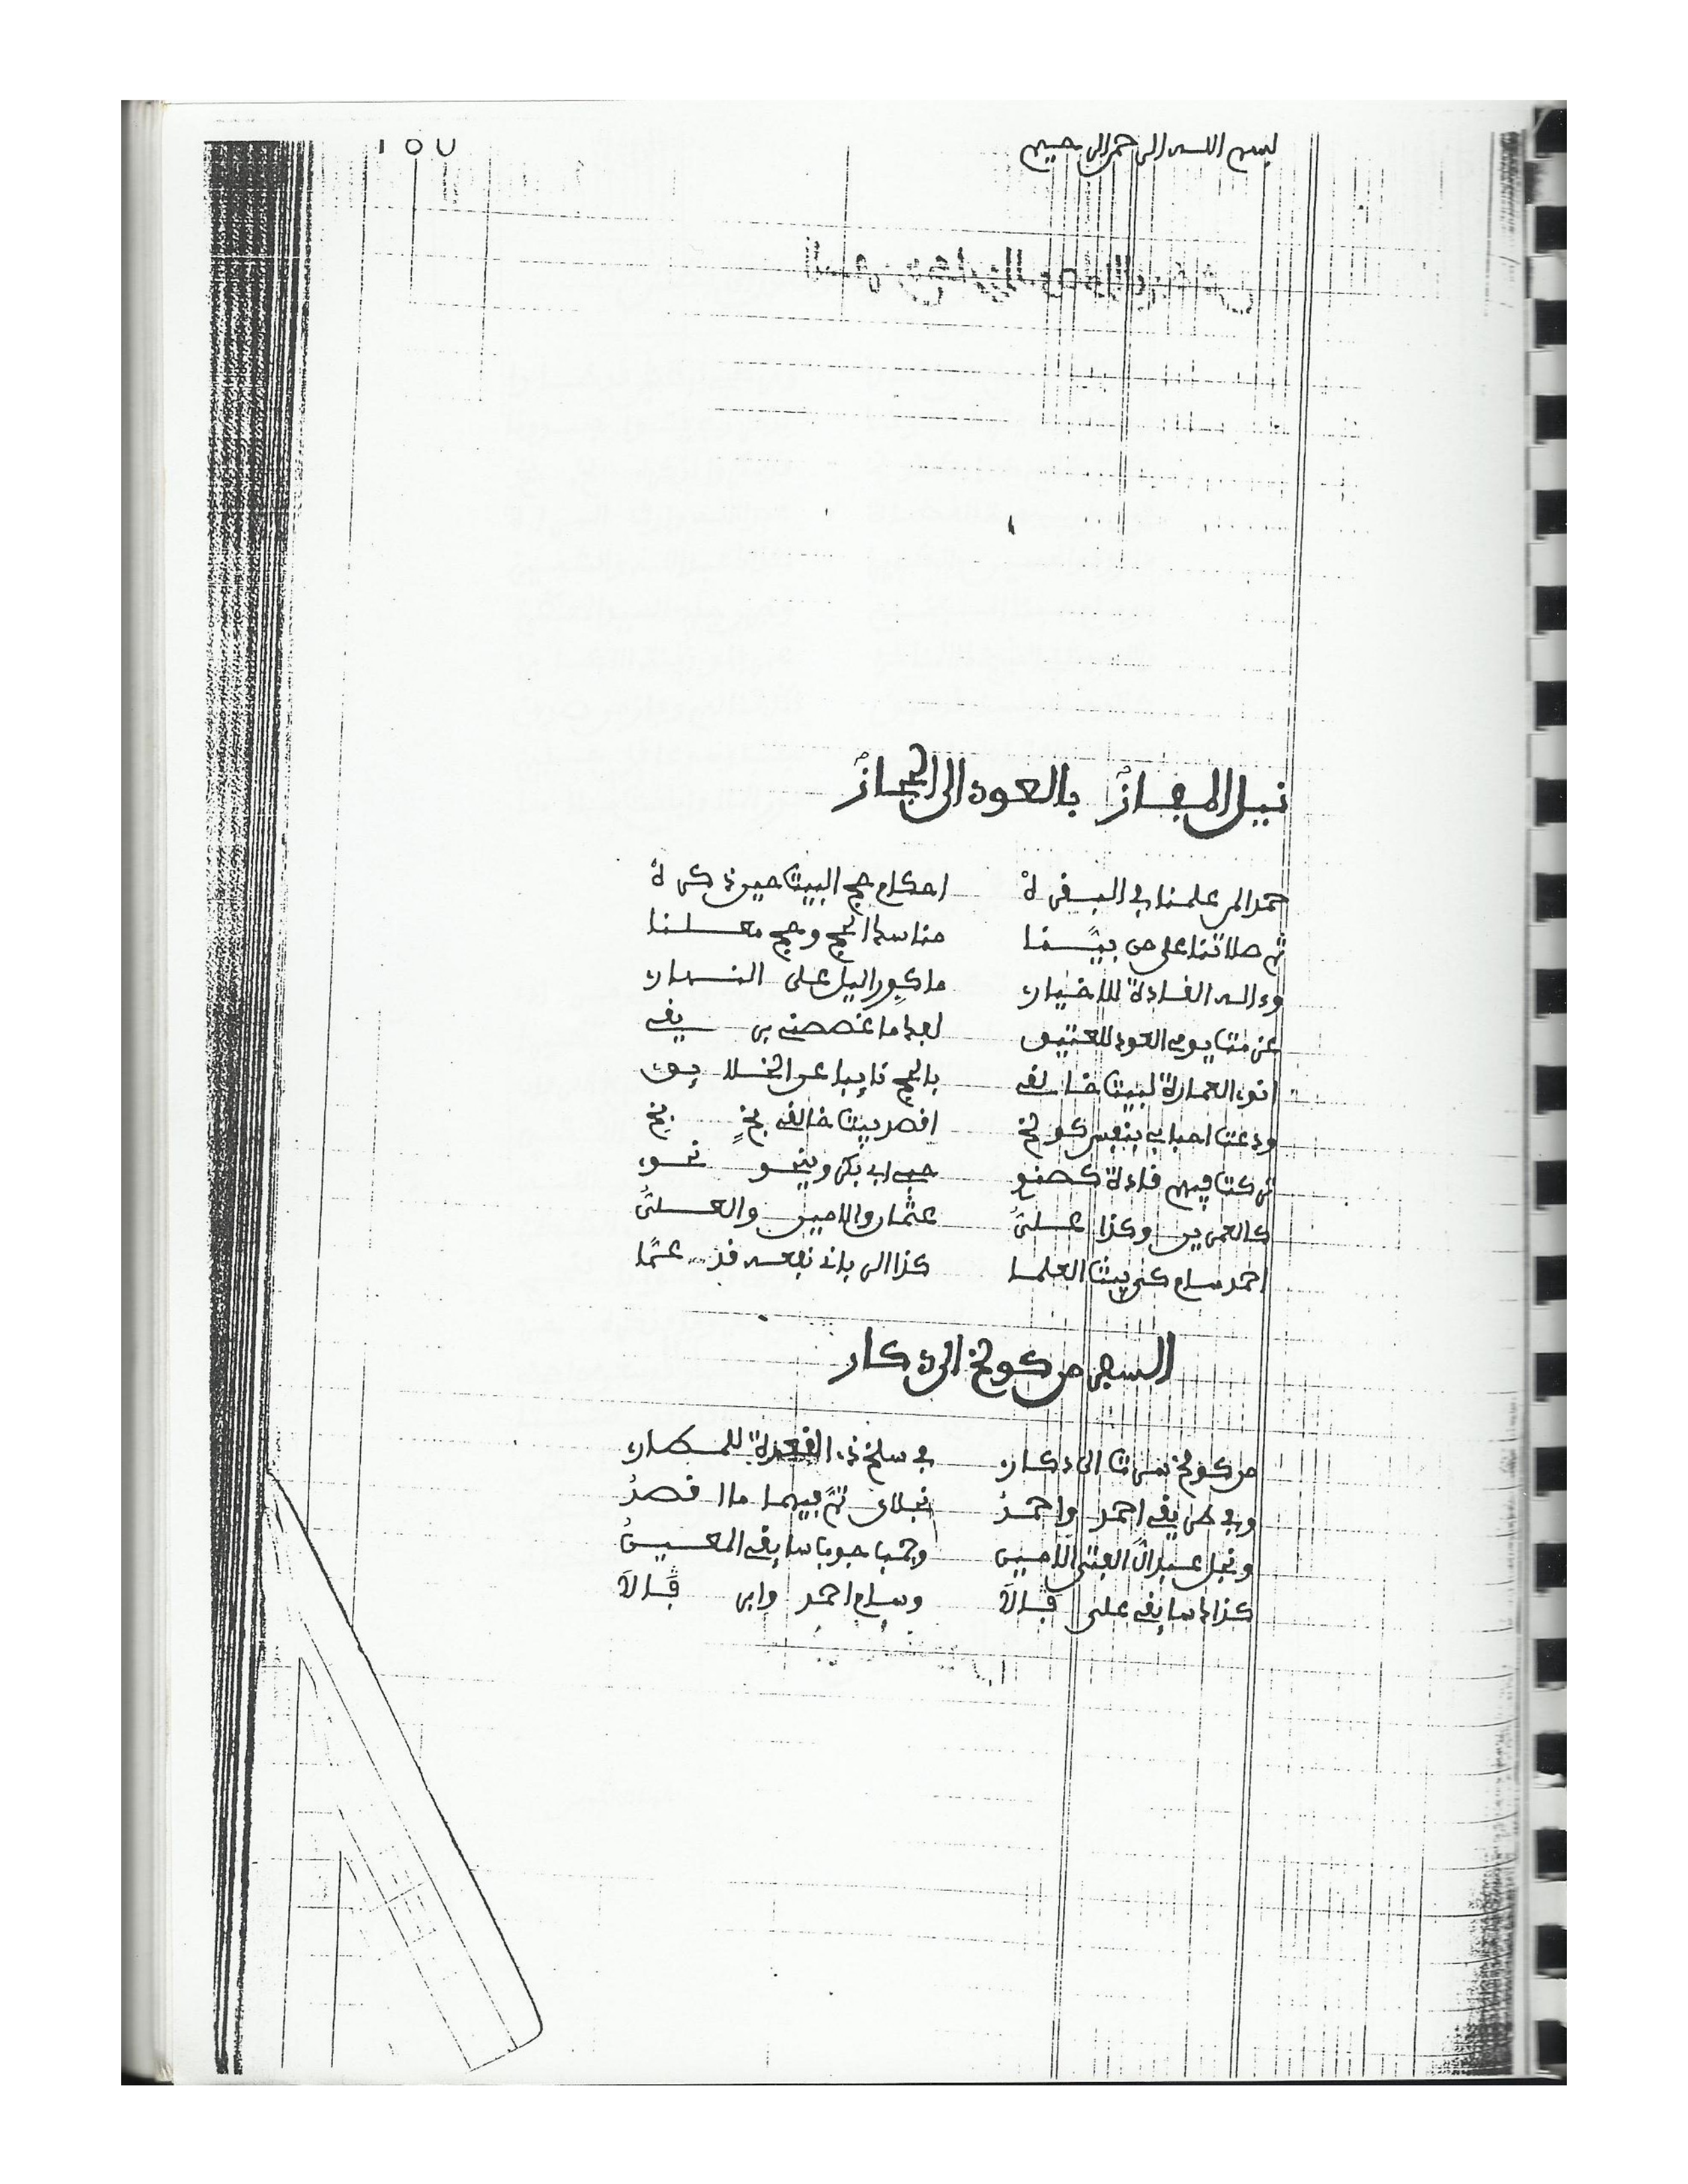 بسم الله الرحمن الرحيم
نيل المفاز بالعود الى الحجاز
حمدا لمن علمنا في البقرة احكام حج البيت حين ذكره
ثم صلاتنا على من بيّنا مناسك الحج وحج معلنا
وءاله القادة الاخيار ما كور اليل على النهار
عزمت يوم العود للعتيق بعد ما غصصني بريقي
انوي العمارة لبيت خالقي بالحج نايبا عن الخلايق
ودعت احبابي بنفس كولخ اقصد بيت خالقي بخٍ بخ
تركت فيهم قادة كصنو حب ابي بكر وينحو نحوي
كالعمرين وكذا عليّ عثمان والامين والعليّ
احمد سام كنز بيت العلما كذا الرباني نفعه قد عمّا
السفر من كولخ الى دكار
من كولخ سرت الى دكار في سلخ ذي القعدة للمطار
وفي طريقي احمد واحمدُ نجلاي ثمّ فيهما ما اقصدُ
ونجل عبد الّ الفتى الامين وحبا جوبا سايقي المعينُ
كذاك سايقي على فالَ وسام احمد وابر فالَ